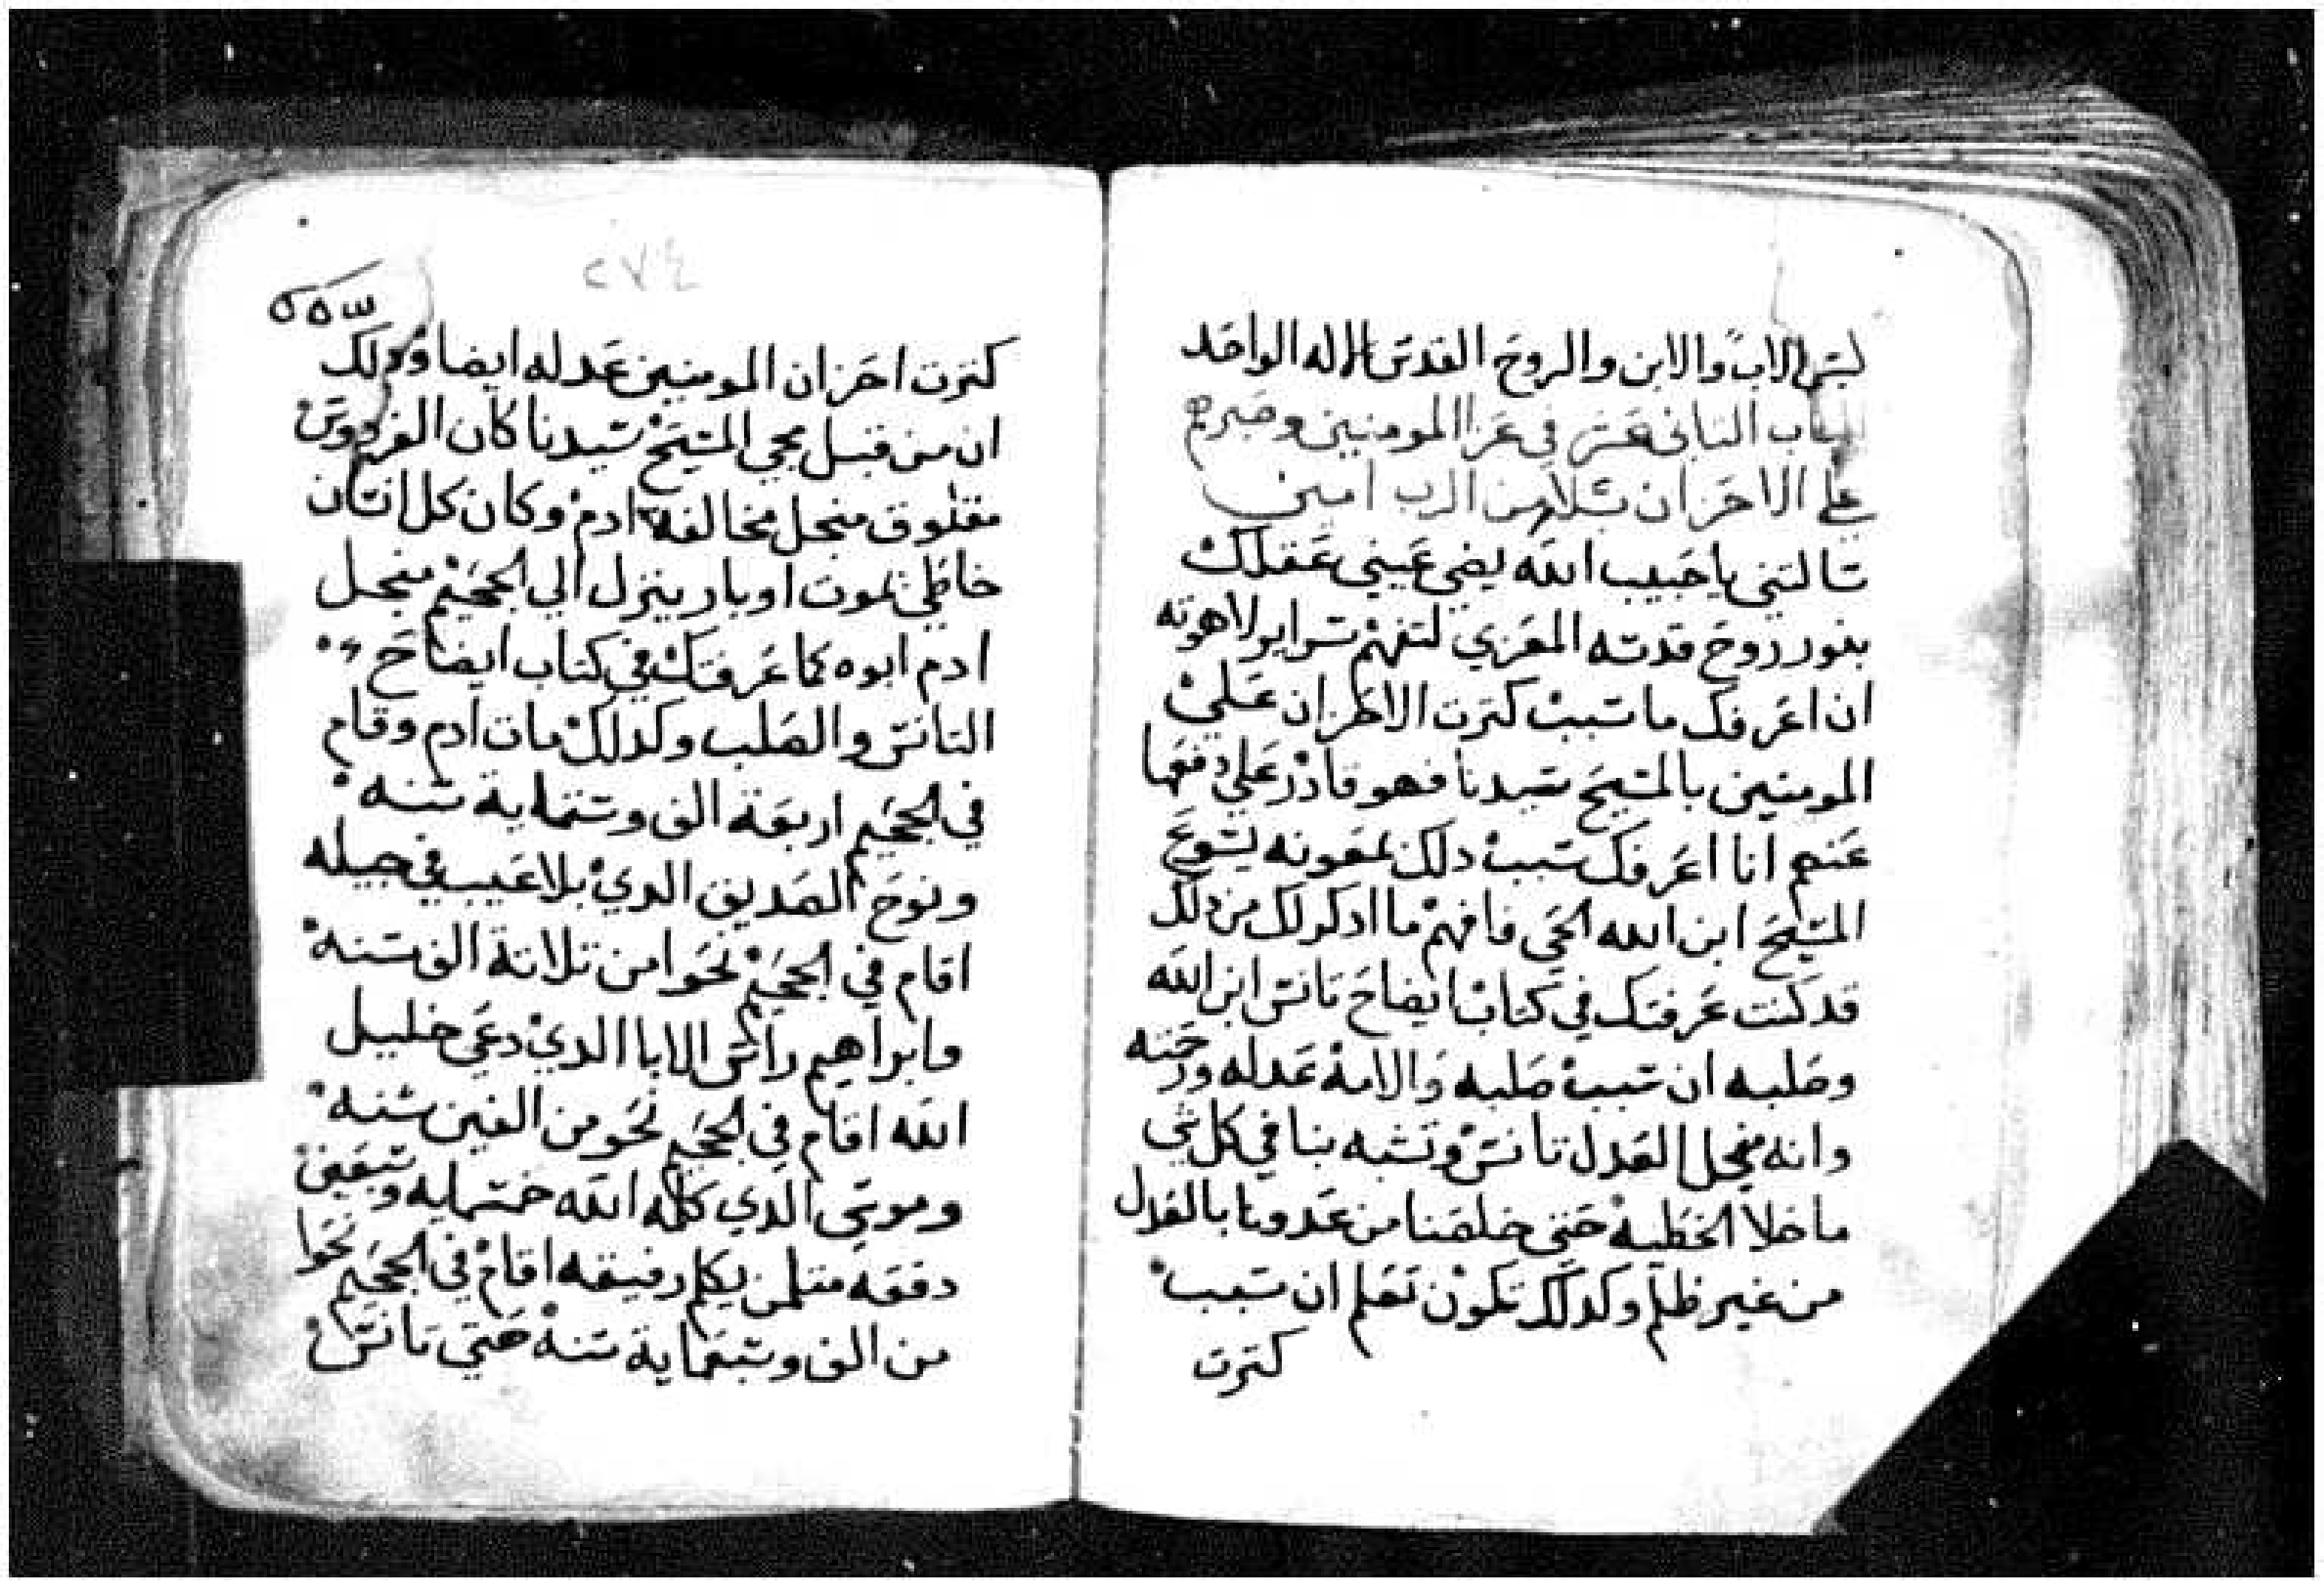 بسم الاب والابن والروح القدس الاله الواحد
الباب التاني عشر في عزا المومنين وصبرهم
علي الاحزان بسلام من الرب امين
سالتني يا حبيب الله يضي عيني عقلك
بنور روح قدسه المعزي لتفهم سراير لاهوته
ان اعرفك ما سبب كترت الاحزان علي
المومنين بالمسيح سيدنا فهو قادر علي دفعها
عنهم انا اعرفك سبب دلك بمعونه يسوع
المسيح ابن الله الحي فافهم ما ادكر لك من دلك
قد كنت عرفتك في كتاب ايضاح تانس ابن الله
وصلبه ان سبب صلبه والامه عدله ورحمته
وانه منجل العدل تانس وتشبه بنا في كل شي
ما خلا الخطيه حتي خلصنا من عدونا بالعدل
من غير ظلم وكدلك تكون تعلم ان سبب
كترت
٢٧٤
كترت احزان المومنين عدله ايضا ودلك
ان من قبل مجي المسيح سيدنا كان الفردوس
مغلوق منجل مخالفة ادم وكان كل انسان
خاطي يموت او بار ينزل الي الجحيم منجل
ادم ابوه كما عرفتك في كتاب ايضاح
التانس والصلب وكدلك مات ادم وقام
في الجحيم اربعة الف وستماية سنه
ونوح الصديق الدي بلا عيب في جيله
اقام في الجحيم نحوا من تلاتة الف سنه
وابراهيم راس الابا الدي دعي خليل
الله اقام في الجحيم نحو من الفين سنه
وموسي الدي كلمه الله خمسمايه وسبعين
دفعه متلمن يكلم رفيقه اقام في الجحيم نحوا
من الف وسبعماية سنه حتي تانس